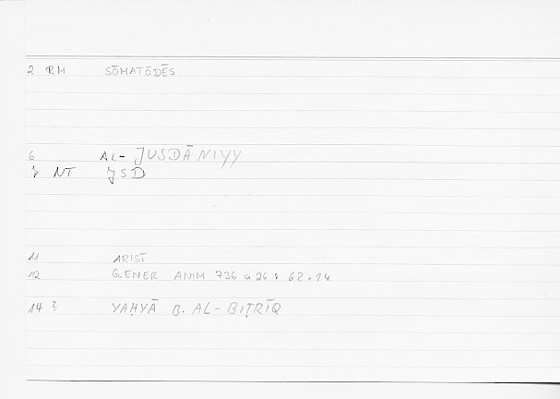 2 RM SŌMATŌDĒS
6 AL-JUSDĀNIYY
7 NT JSD
11 ARIST
12 GENER ANIM 736 a 26 : 62.14
14 ? YAḤYĀ B. AL-BIṬRĪQ